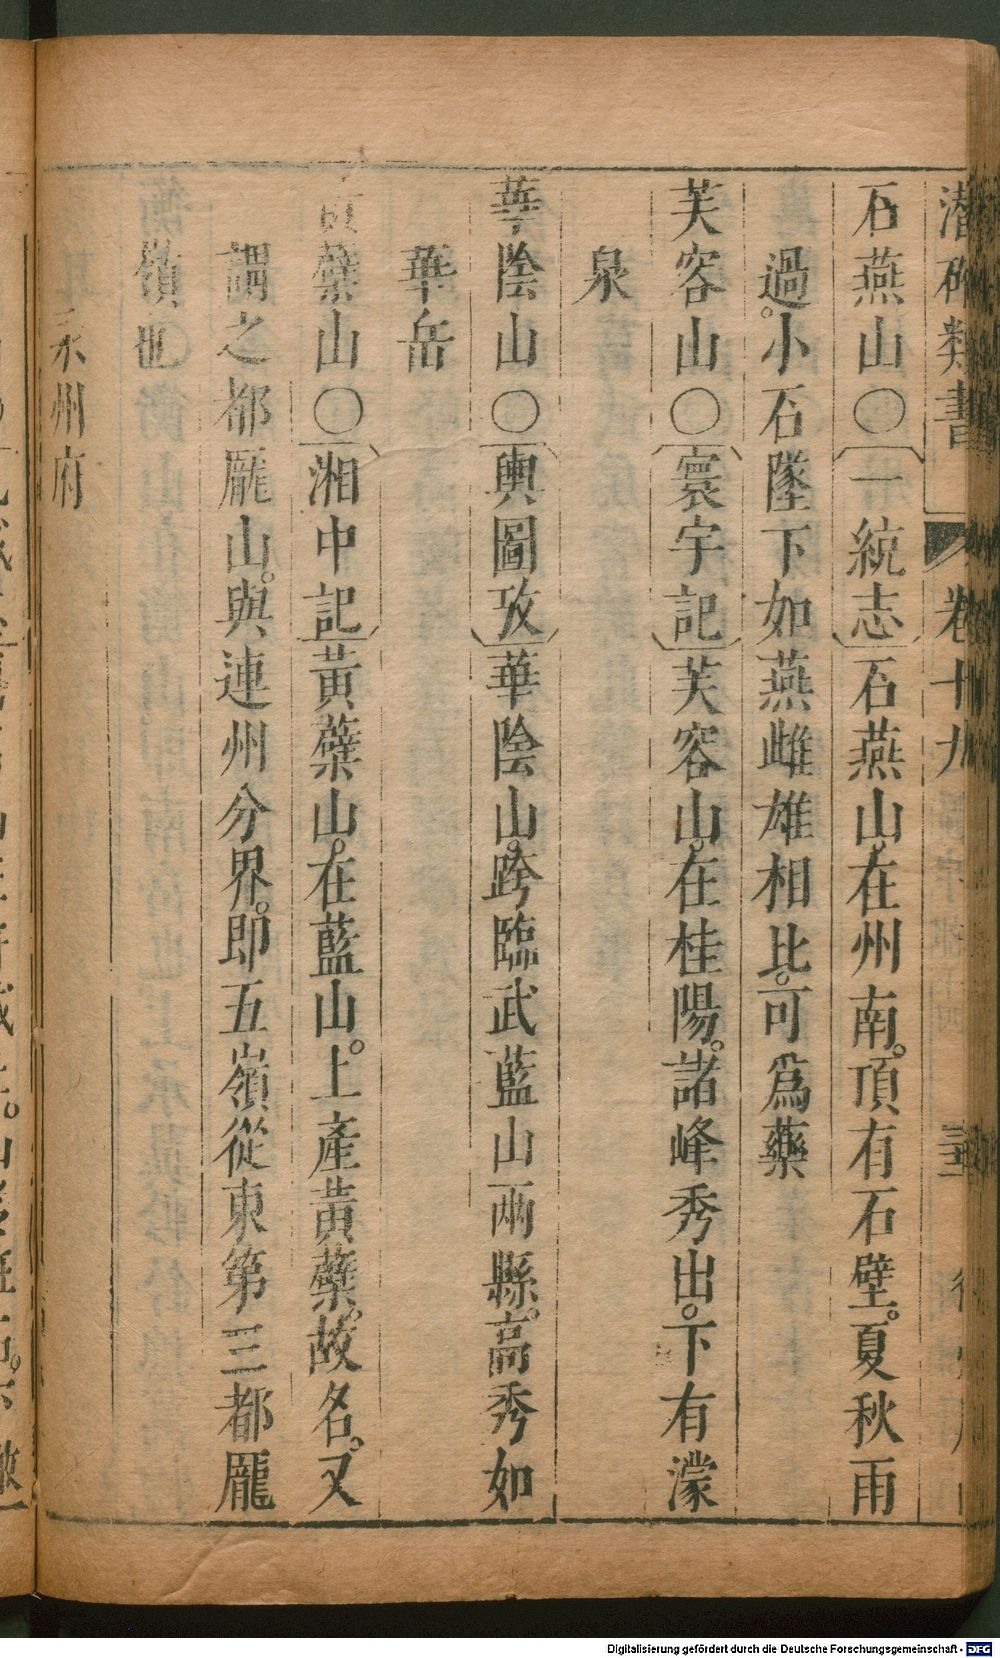 潛確類書 卷十九
石燕山〇〔一統志〕石燕山。在州南。頂有石壁。夏秋雨
過。小石墜下如燕雌雄相比。可爲藥
芙容山〇〔寰宇記〕芙容山。在桂陽。諸峰秀出。下有濛
泉
華陰山〇〔輿圖攷〕華陰山。跨臨武藍山兩縣。高秀如
華岳
黃蘗山〇〔湘中記〕黃蘗山。在藍山。上產黃蘗。故名。又
謂之都龐山。與連州分界。即五嶺從東第三都龐
嶺也
永州府
Digitalisierung gefördert durch die Deutsche Forschungsgemeinschaft - DFG